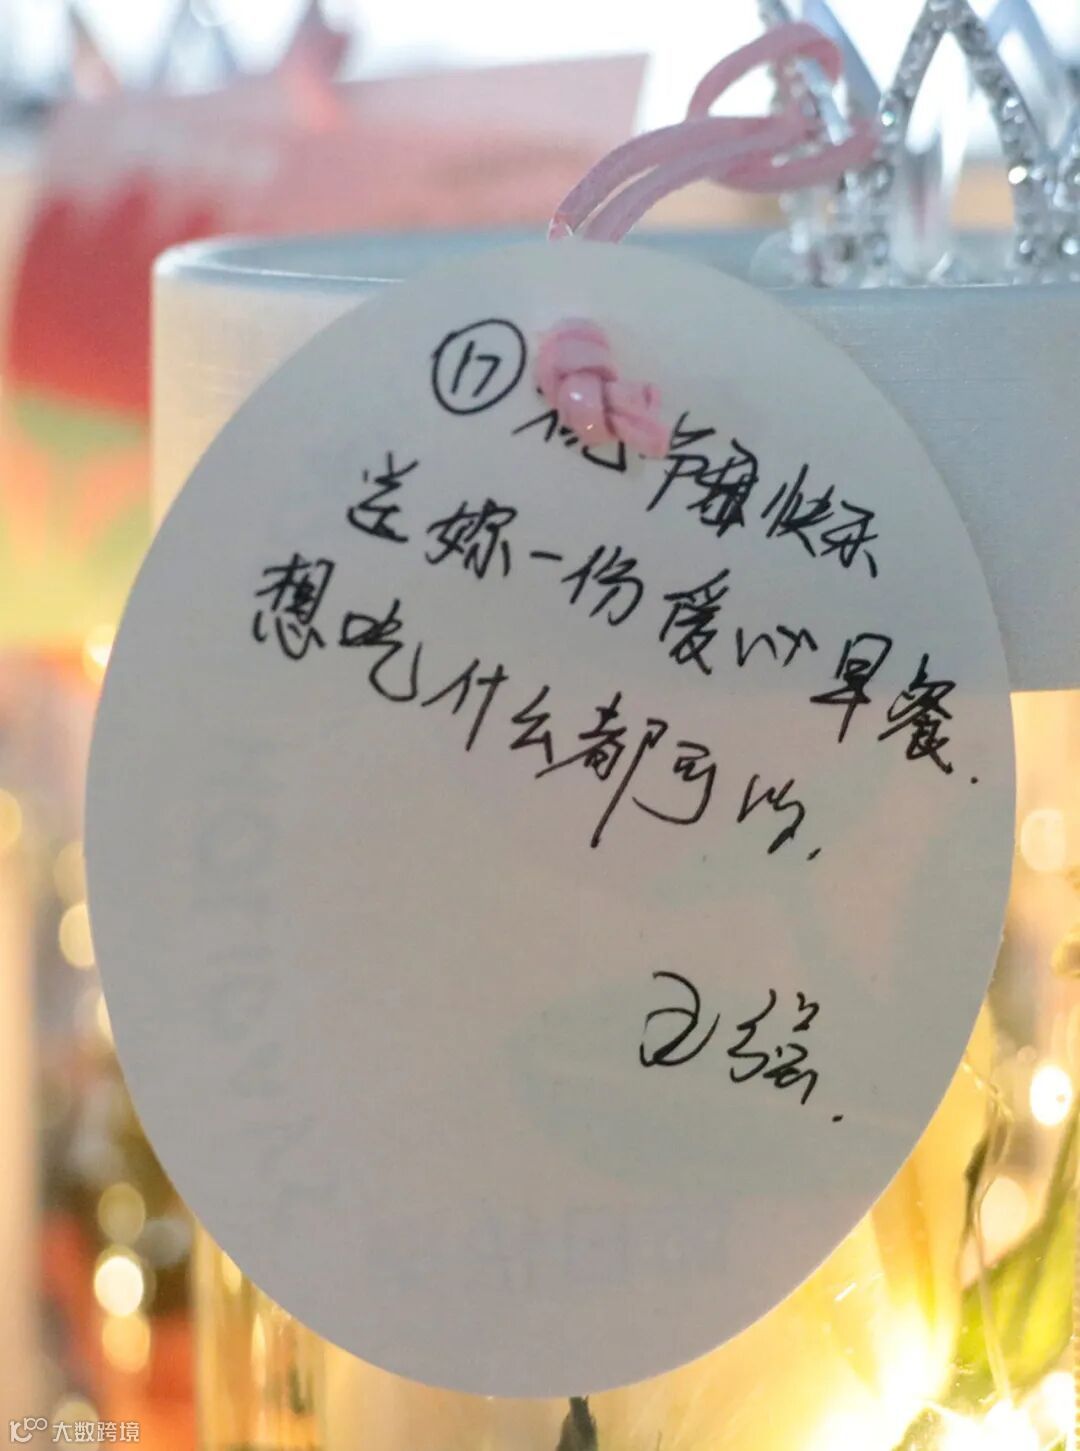 ⑰ 快乐
送妳一份爱心早餐.
想吃什么都可以.
王
大数跨境